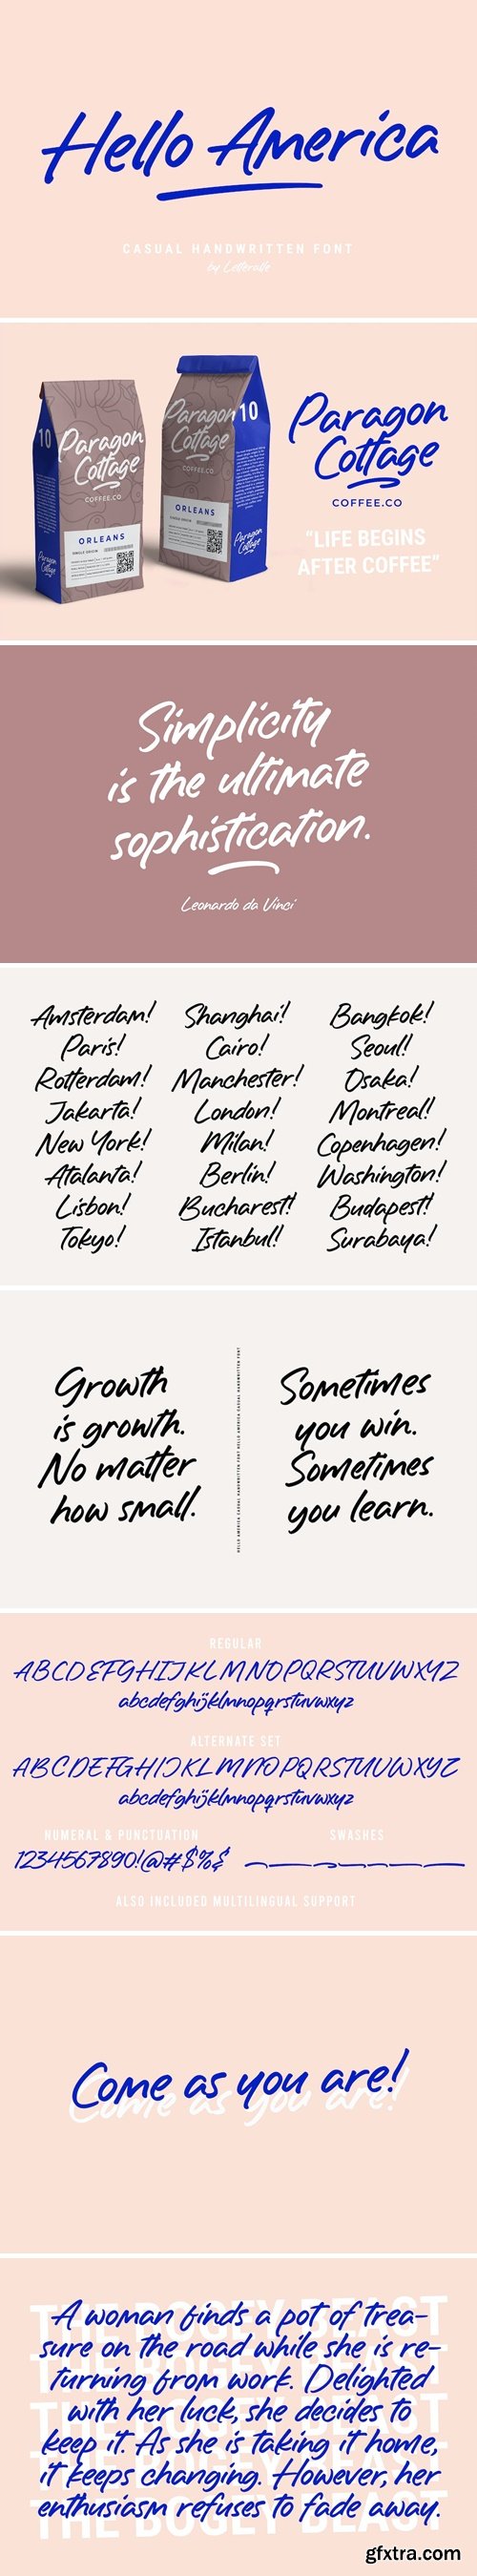 Hello America
CASUAL HANDWRITTEN FONT
by Letterative
10
Paragon
Cottage
COFFEE.CO
ORLEANS
SINGLE ORIGIN
Paragon
Cottage
10
Paragon
Cottage
COFFEE.CO
ORLEANS
Paragon
Cottage
Paragon
Cottage
COFFEE.CO
“LIFE BEGINS
AFTER COFFEE”
Simplicity
is the ultimate
sophistication.
Leonardo da Vinci
Amsterdam! Shanghai! Bangkok!
Paris! Cairo! Seoul!
Rotterdam! Manchester! Osaka!
Jakarta! London! Montreal!
New York! Milan! Copenhagen!
Atalanta! Berlin! Washington!
Lisbon! Bucharest! Budapest!
Tokyo! Istanbul! Surabaya!
Growth
is growth.
No matter
how small.
HELLO AMERICA CASUAL HANDWRITTEN FONT HELLO AMERICA CASUAL HANDWRITTEN FONT
Sometimes
you win.
Sometimes
you learn.
REGULAR
ABCDEFGHIJKLMNOPQRSTUVWXYZ
abcdefghijklmnopqrstuvwxyz
ALTERNATE SET
ABCDEFGHIJKLMNOPQRSTUVWXYZ
abcdefghijklmnopqrstuvwxyz
NUMERAL & PUNCTUATION SWASHES
1234567890!@#$%&
ALSO INCLUDED MULTILINGUAL SUPPORT
Come as you are!
Come as you are!
THE BOGEY BEAST
A woman finds a pot of trea-
sure on the road while she is re-
turning from work. Delighted
with her luck, she decides to
keep it. As she is taking it home,
it keeps changing. However, her
enthusiasm refuses to fade away.
THE BOGEY BEAST
gfxtra.com